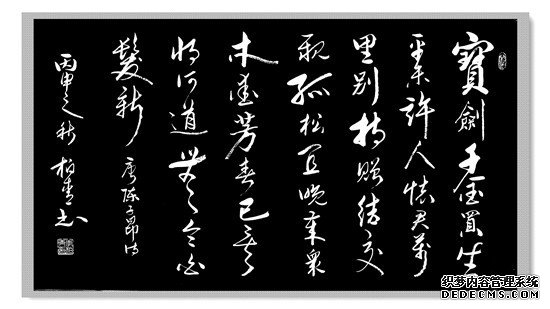 寶劍千金買生
平未許人懷君萬
里別持贈結交
親孤松宜晚歲衆
木愛芳春已矣
將何道無令白
髮新
唐陳子昂詩
丙申之秋 柏青書
织梦内容管理系统
DEDECMS.COM